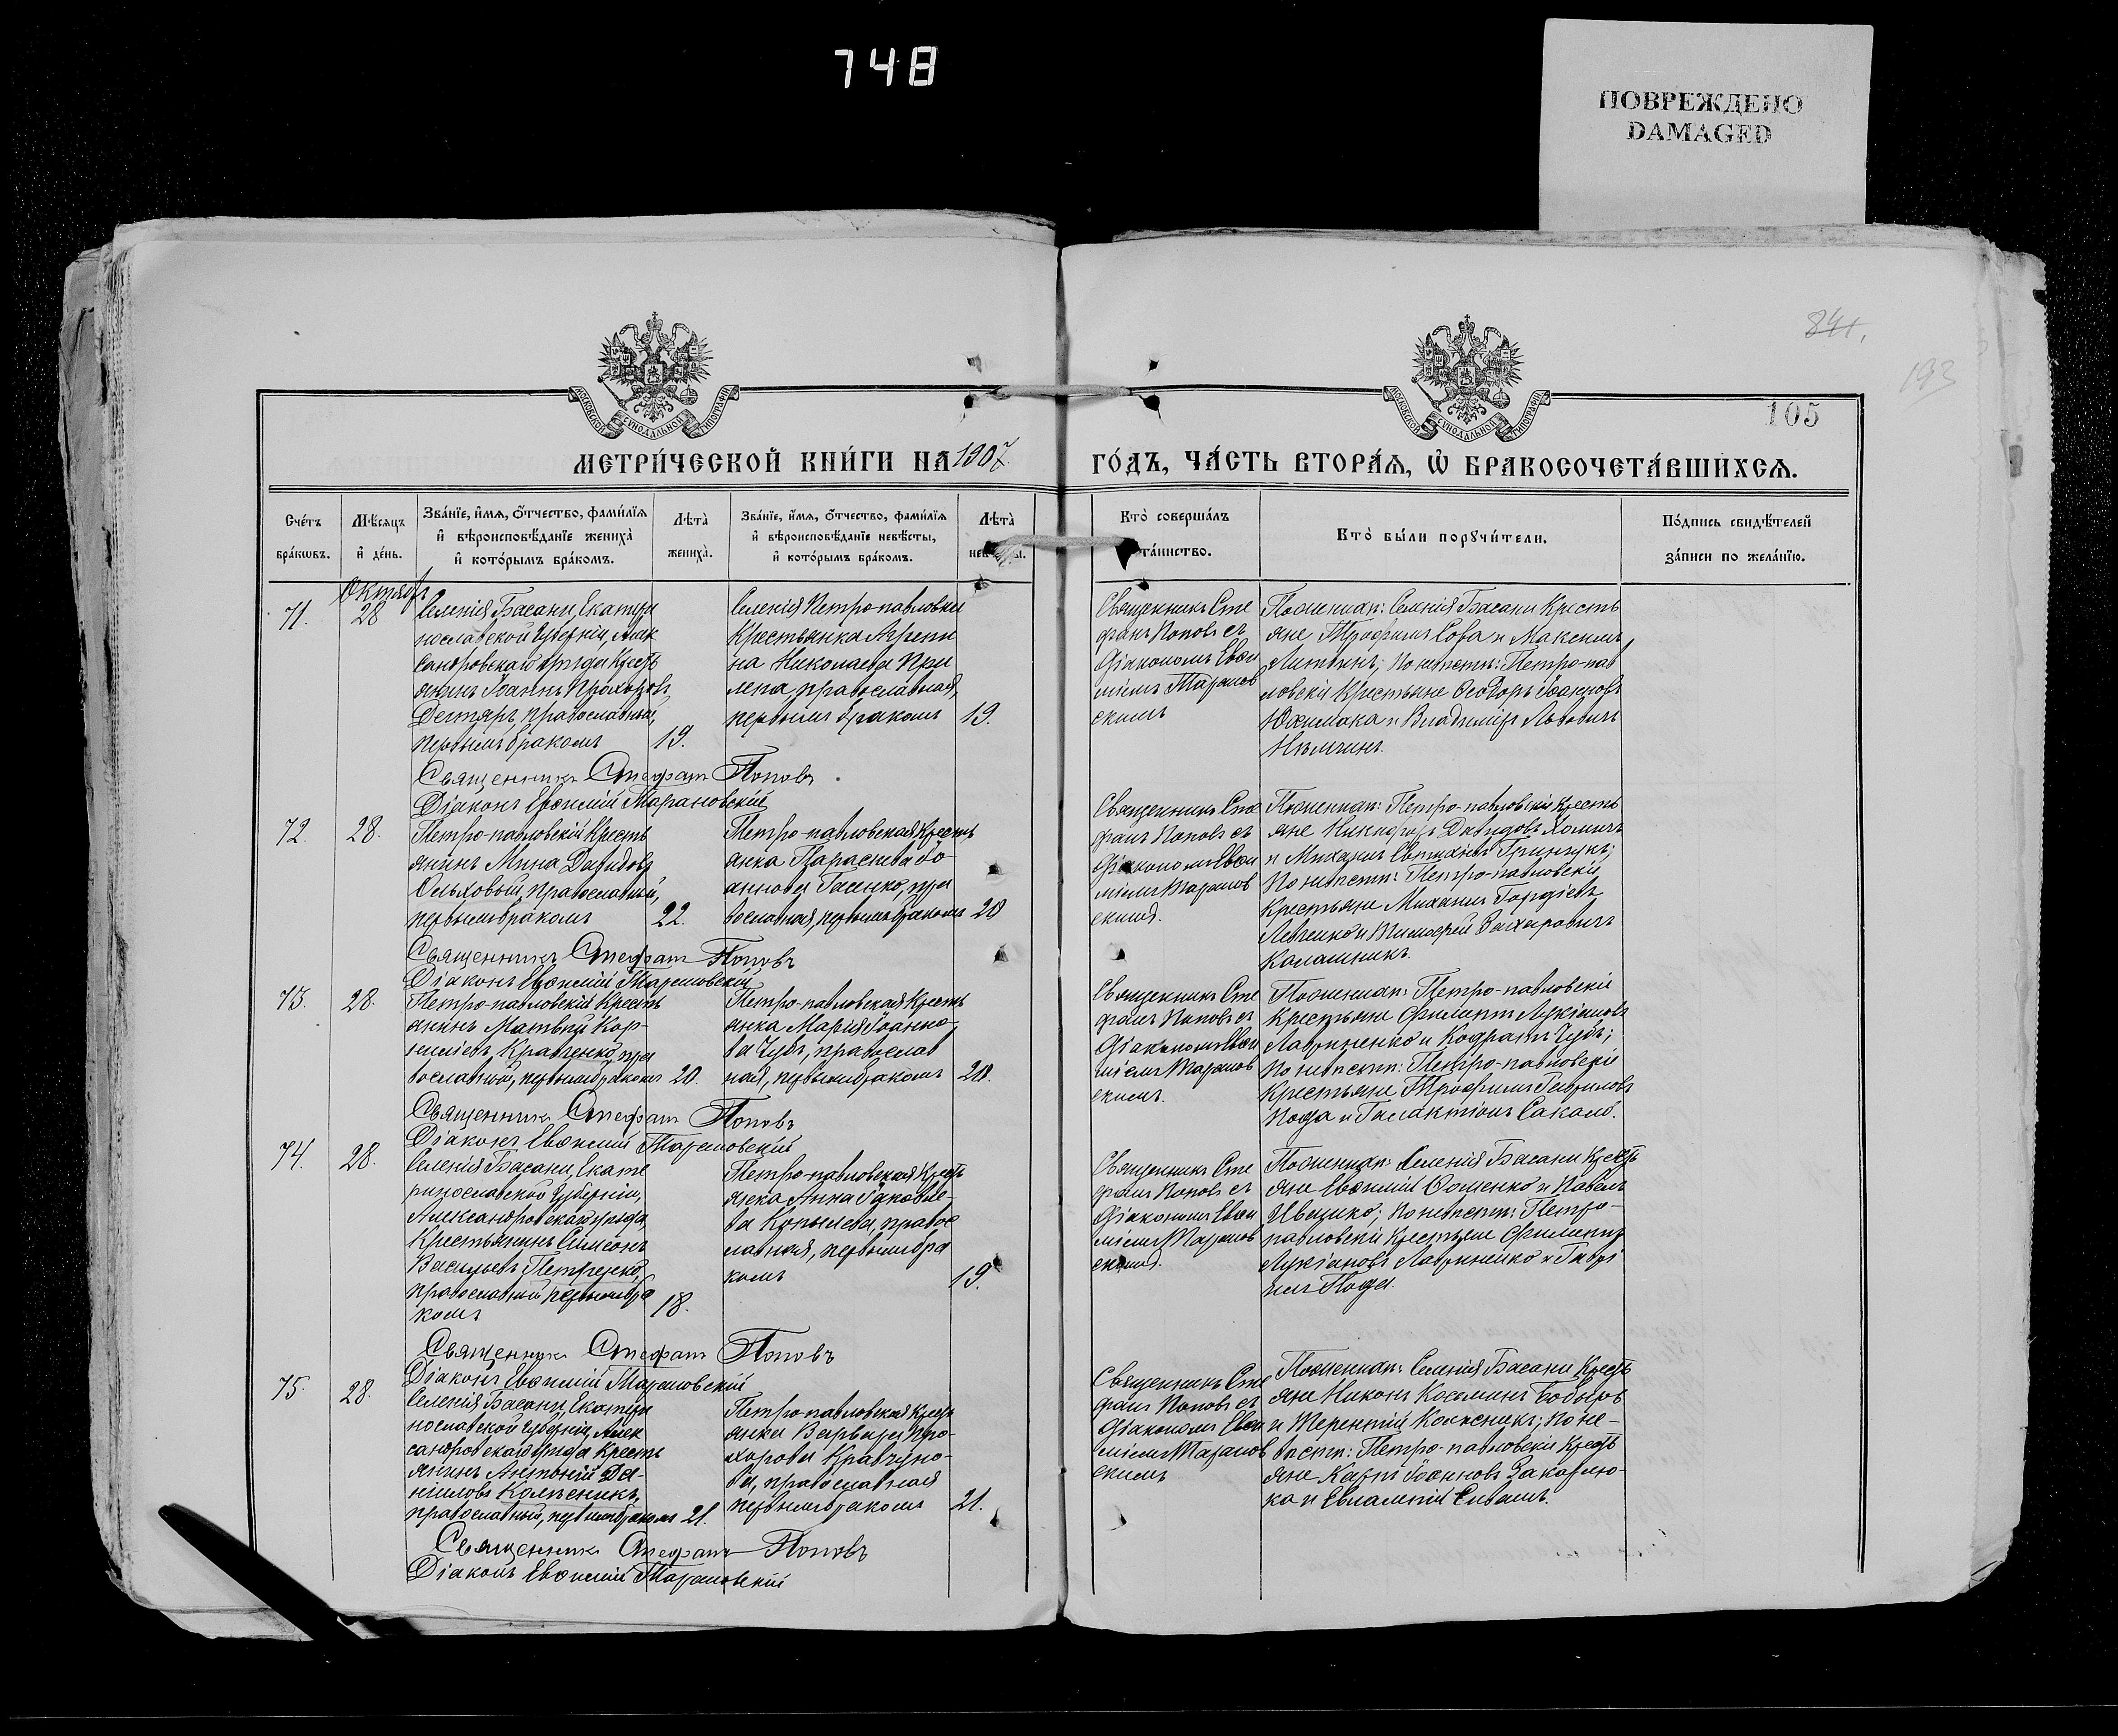 748
ПОВРЕЖДЕНО
DAMAGED
841.
193
105
МОСКОВСКОЙ СУНОДАЛЬНОЙ ТИПОГРАФІИ
МОСКОВСКОЙ СУНОДАЛЬНОЙ ТИПОГРАФІИ
МЕТРИ́ЧЕСКОЙ КНИ́ГИ НА 1907
ГО́ДЪ, ЧА́СТЬ ВТОРА́Я, Ѡ БРАКОСОЧЕТА́ВШИХСЯ.
Сче́тъ
бра́кѡвъ.
Мѣ́сяцъ
и҆ де́нь.
Зва́нїе, и҆́мѧ, ѻ҆́тчество, фами́лїѧ
и҆ вѣроисповѣ́данїе жениха̀
и҆ кото́рымъ бра́комъ.
Лѣта̀
жениха̀.
Зва́нїе, и҆́мѧ, ѻ҆́тчество, фами́лїѧ
и҆ вѣроисповѣ́данїе невѣ́сты,
и҆ кото́рымъ бра́комъ.
Лѣта̀
невѣ́сты.
Кто̀ соверша́лъ
та́инство.
Кто̀ бы́ли порꙋчи́тели.
По́дпись свидѣ́телей
за́писи по жела́нїю.
Октябрь
71.
28
Селенія Басани, Екатери
нославской Губерніи, Алек
сандровскаго уѣзда Кресть
янинъ Іоаннъ Прохоровъ
Дегтярь, православный,
первымъ бракомъ
19.
Селенія Петро-павловки
Крестьянка Агрепи
на Николаева При
лепа, православная,
первымъ бракомъ
19.
Священникъ Сте
фанъ Поповъ съ
Діакономъ Евѳи
міемъ Таранов
скимъ
По женихѣ: Селенія Басани Кресть
яне Трофимъ Сова и Максимъ
Литвинъ; по невѣстѣ: Петро-пав
ловскіе Крестьяне Ѳеодоръ Іоанновъ
Юхимака и Владиміръ Львовичъ
Нѣмчинъ.
Священникъ Стефанъ Поповъ
Діаконъ Евѳимій Тарановскій
72.
28.
Петро-павловскій Кресть
янинъ Мина Давидовъ
Ольховый, православный,
первымъ бракомъ
22.
Петро-павловская Кресть
янка Параскева Іо-
аннова Гасенко, пра
вославная, первымъ бракомъ
20
Священникъ Сте
фанъ Поповъ съ
Діакономъ Евѳи
міемъ Таранов
скимъ.
По женихѣ: Петро-павловскіе Кресть
яне Никифоръ Давидовъ Хомичъ
и Михаилъ Евтихіевъ Гринчукъ;
По невѣстѣ: Петро-павловскіе
Крестьяне Михаилъ Гордіевъ
Левченко и Тимофей Захаровичъ
Калашникъ.
Священникъ Стефанъ Поповъ
Діаконъ Евѳимій Тарановскій
73.
28.
Петро-павловскій Кресть
янинъ Матвѣй Кор-
ниліевъ Кравченко, пра
вославный, первымъ бракомъ
20.
Петро-павловская Кресть
янка Марія Іоанно-
ва Чубъ, православ
ная, первымъ бракомъ
20.
Священникъ Сте
фанъ Поповъ съ
Діакономъ Евѳи
міемъ Таранов
скимъ.
По женихѣ: Петро-павловскіе
Крестьяне Филиппъ Лукіановъ
Лавриненко и Кодратъ Чубъ;
По невѣстѣ: Петро-павловскіе
Крестьяне Трофимъ Гавриловъ
Пода и Галактіонъ Саколъ.
Священникъ Стефанъ Поповъ
Діаконъ Евѳимій Тарановскій
74.
28.
Селенія Басани, Екате
ринославской Губерніи,
Александровскаго уѣзда
Крестьянинъ Симеонъ
Васильевъ Петренко,
православный первымъ бра
комъ
18.
Петро-павловская Кресть
янка Анна Іаковле-
ва Копылева, правос
лавная, первымъ бра
комъ
19.
Священникъ Сте
фанъ Поповъ съ
Діакономъ Евѳи
міемъ Таранов
скимъ.
По женихѣ: Селенія Басани Кресть
яне Евѳимій Ошенко и Павелъ
Иващко; по невѣстѣ: Петро-
павловскіе Крестьяне Филиппъ
Лукіановъ Лавриненко и Гаврі
илъ Пода.
Священникъ Стефанъ Поповъ
Діаконъ Евѳимій Тарановскій
75.
28.
Селенія Басани, Екатери
нославской Губерніи, Алек
сандровскаго уѣзда Кресть
янинъ Антоній Да-
ниловъ Колѣсникъ,
православный, первымъ бракомъ
21.
Петро-павловская Кресть
янка Варвара Про-
хорова Кравчуно-
ва, православная
первымъ бракомъ
21.
Священникъ Сте
фанъ Поповъ съ
Діакономъ Евѳи
міемъ Таранов
скимъ
По женихѣ: Селенія Басани Кресть
яне Никонъ Косьминъ Бобыръ
и Терентій Колѣсникъ; по не-
вѣстѣ: Петро-павловскіе Кресть
яне Карпъ Іоанновъ Закарлю-
ка и Евлампій Сивашъ.
Священникъ Стефанъ Поповъ
Діаконъ Евѳимій Тарановскій